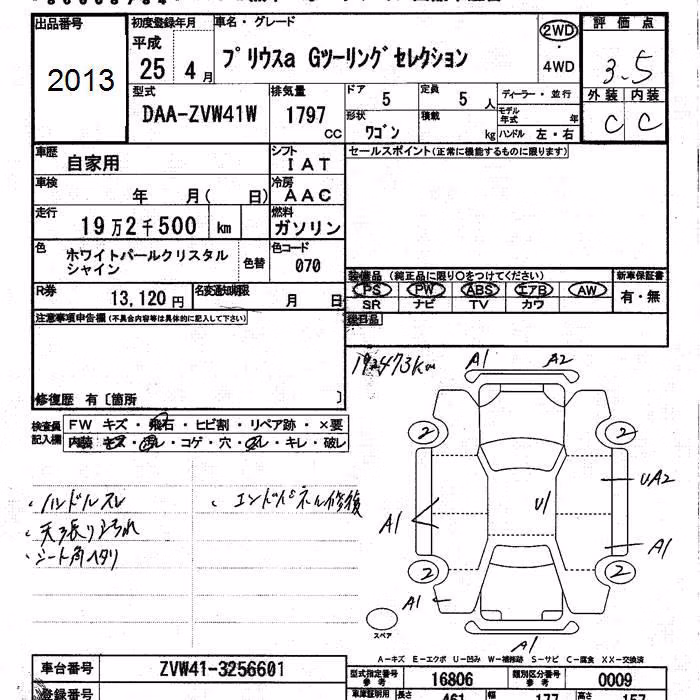 出品番号
2013
初度登録年月
平成
25 4 月
車名・グレード
プリウスa Gツーリングセレクション
2WD
・
4WD
評価点
3.5
外装 内装
C C
型式
DAA-ZVW41W
排気量
1797
CC
ドア
5
定員
5 人
ディーラー・並行
形状
ワゴン
積載
kg
モデル
年式
年
ハンドル 左・右
車歴
自家用
シフト
IAT
セールスポイント(正常に機能するものに限ります)
車検
年 月( 日)
冷房
AAC
走行
19万2千500 km
燃料
ガソリン
色
ホワイトパールクリスタル
シャイン
色替
色コード
070
装備品 (純正品に限り○をつけてください)
PS PW ABS エアB AW
SR ナビ TV カワ
新車保証書
有・無
R券
13,120円
名変通知期限
月 日
後日品
注意事項申告欄(不具合内容等は具体的に記入して下さい)
修復歴 有〔箇所 〕
192473km
検査員
記入欄
FW キズ・飛石・ヒビ割・リペア跡・×要
内装・キズ・汚レ・コゲ・穴・スレ・キレ・破レ
・ハンドルスレ
・天張りヨゴレ
・シート角ヘタリ
・エンドパネル修復
A1 A2
2 2
UA2
A1 U1
A1
2 2
A1
A1
スペア
A-キズ E-エクボ U-凹み W-補修跡 S-サビ C-腐食 XX-交換済
車台番号
ZVW41-3256601
登録番号
型式指定番号
参考
16806
類別区分番号
参考
0009
車車証別用
長さ
461
幅
177
高さ
157